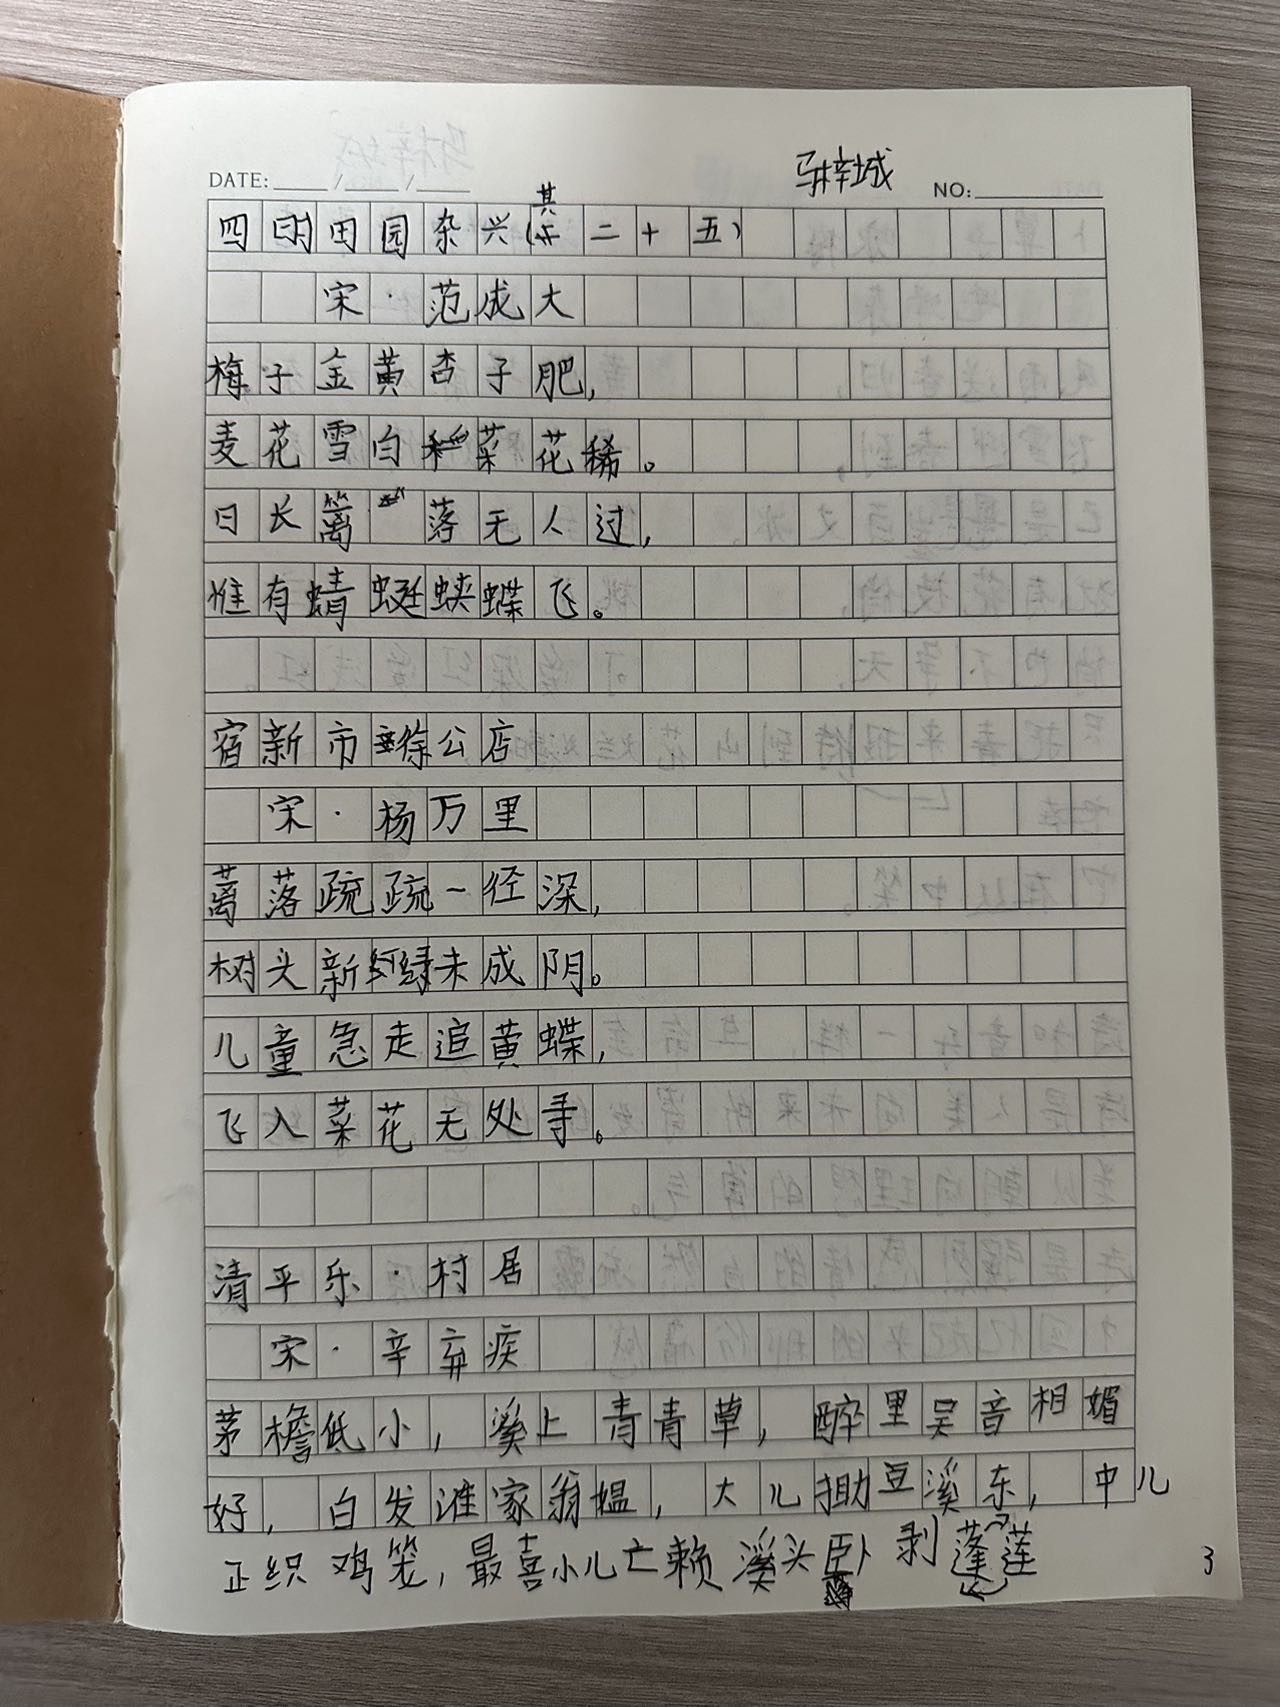 马梓城
DATE: / / NO:
四时田园杂兴(其二十五)
宋·范成大
梅子金黄杏子肥,
麦花雪白菜花稀。
日长篱落无人过,
惟有蜻蜓蛱蝶飞。
宿新市徐公店
宋·杨万里
蓠落疏疏一径深,
树头新绿未成阴。
儿童急走追黄蝶,
飞入菜花无处寻。
清平乐·村居
宋·辛弃疾
茅檐低小,溪上青青草,醉里吴音相媚
好,白发谁家翁媪,大儿锄豆溪东,中儿
正织鸡笼,最喜小儿亡赖溪头卧剥莲蓬
3